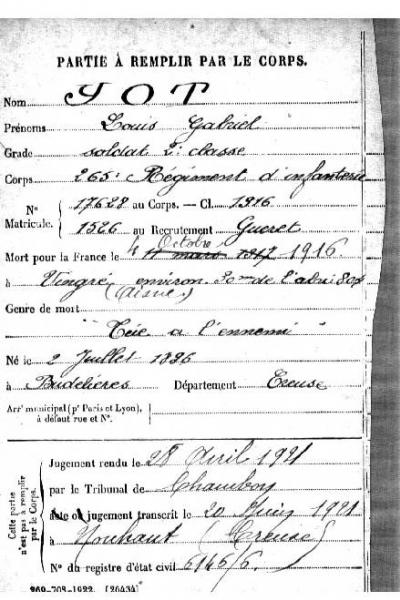 PARTIE À REMPLIR PAR LE CORPS.
Nom JOT
Prénoms Louis Gabriel
Grade soldat 2e classe
Corps 265e Régiment d'infanterie
N° Matricule. 17622 au Corps. — Cl. 1916
1526 au Recrutement Guéret
Mort pour la France le 4 Octobre 11 mars 1917 1916
à Vingré environ 30m de l'abri 807
(Aisne)
Genre de mort
Tué a l'ennemi
Né le 2 Juillet 1896
à Budelières Département Creuse
Arrt municipal (pr Paris et Lyon),
à défaut rue et N°.
Cette partie n'est pas à remplir par le Corps.
Jugement rendu le 28 Avril 1921
par le Tribunal de Chambon
acte ou jugement transcrit le 20 Juin 1921
à Nouhant (Creuse)
N° du registre d'état civil 6145/6
269-708-1922. [26434]